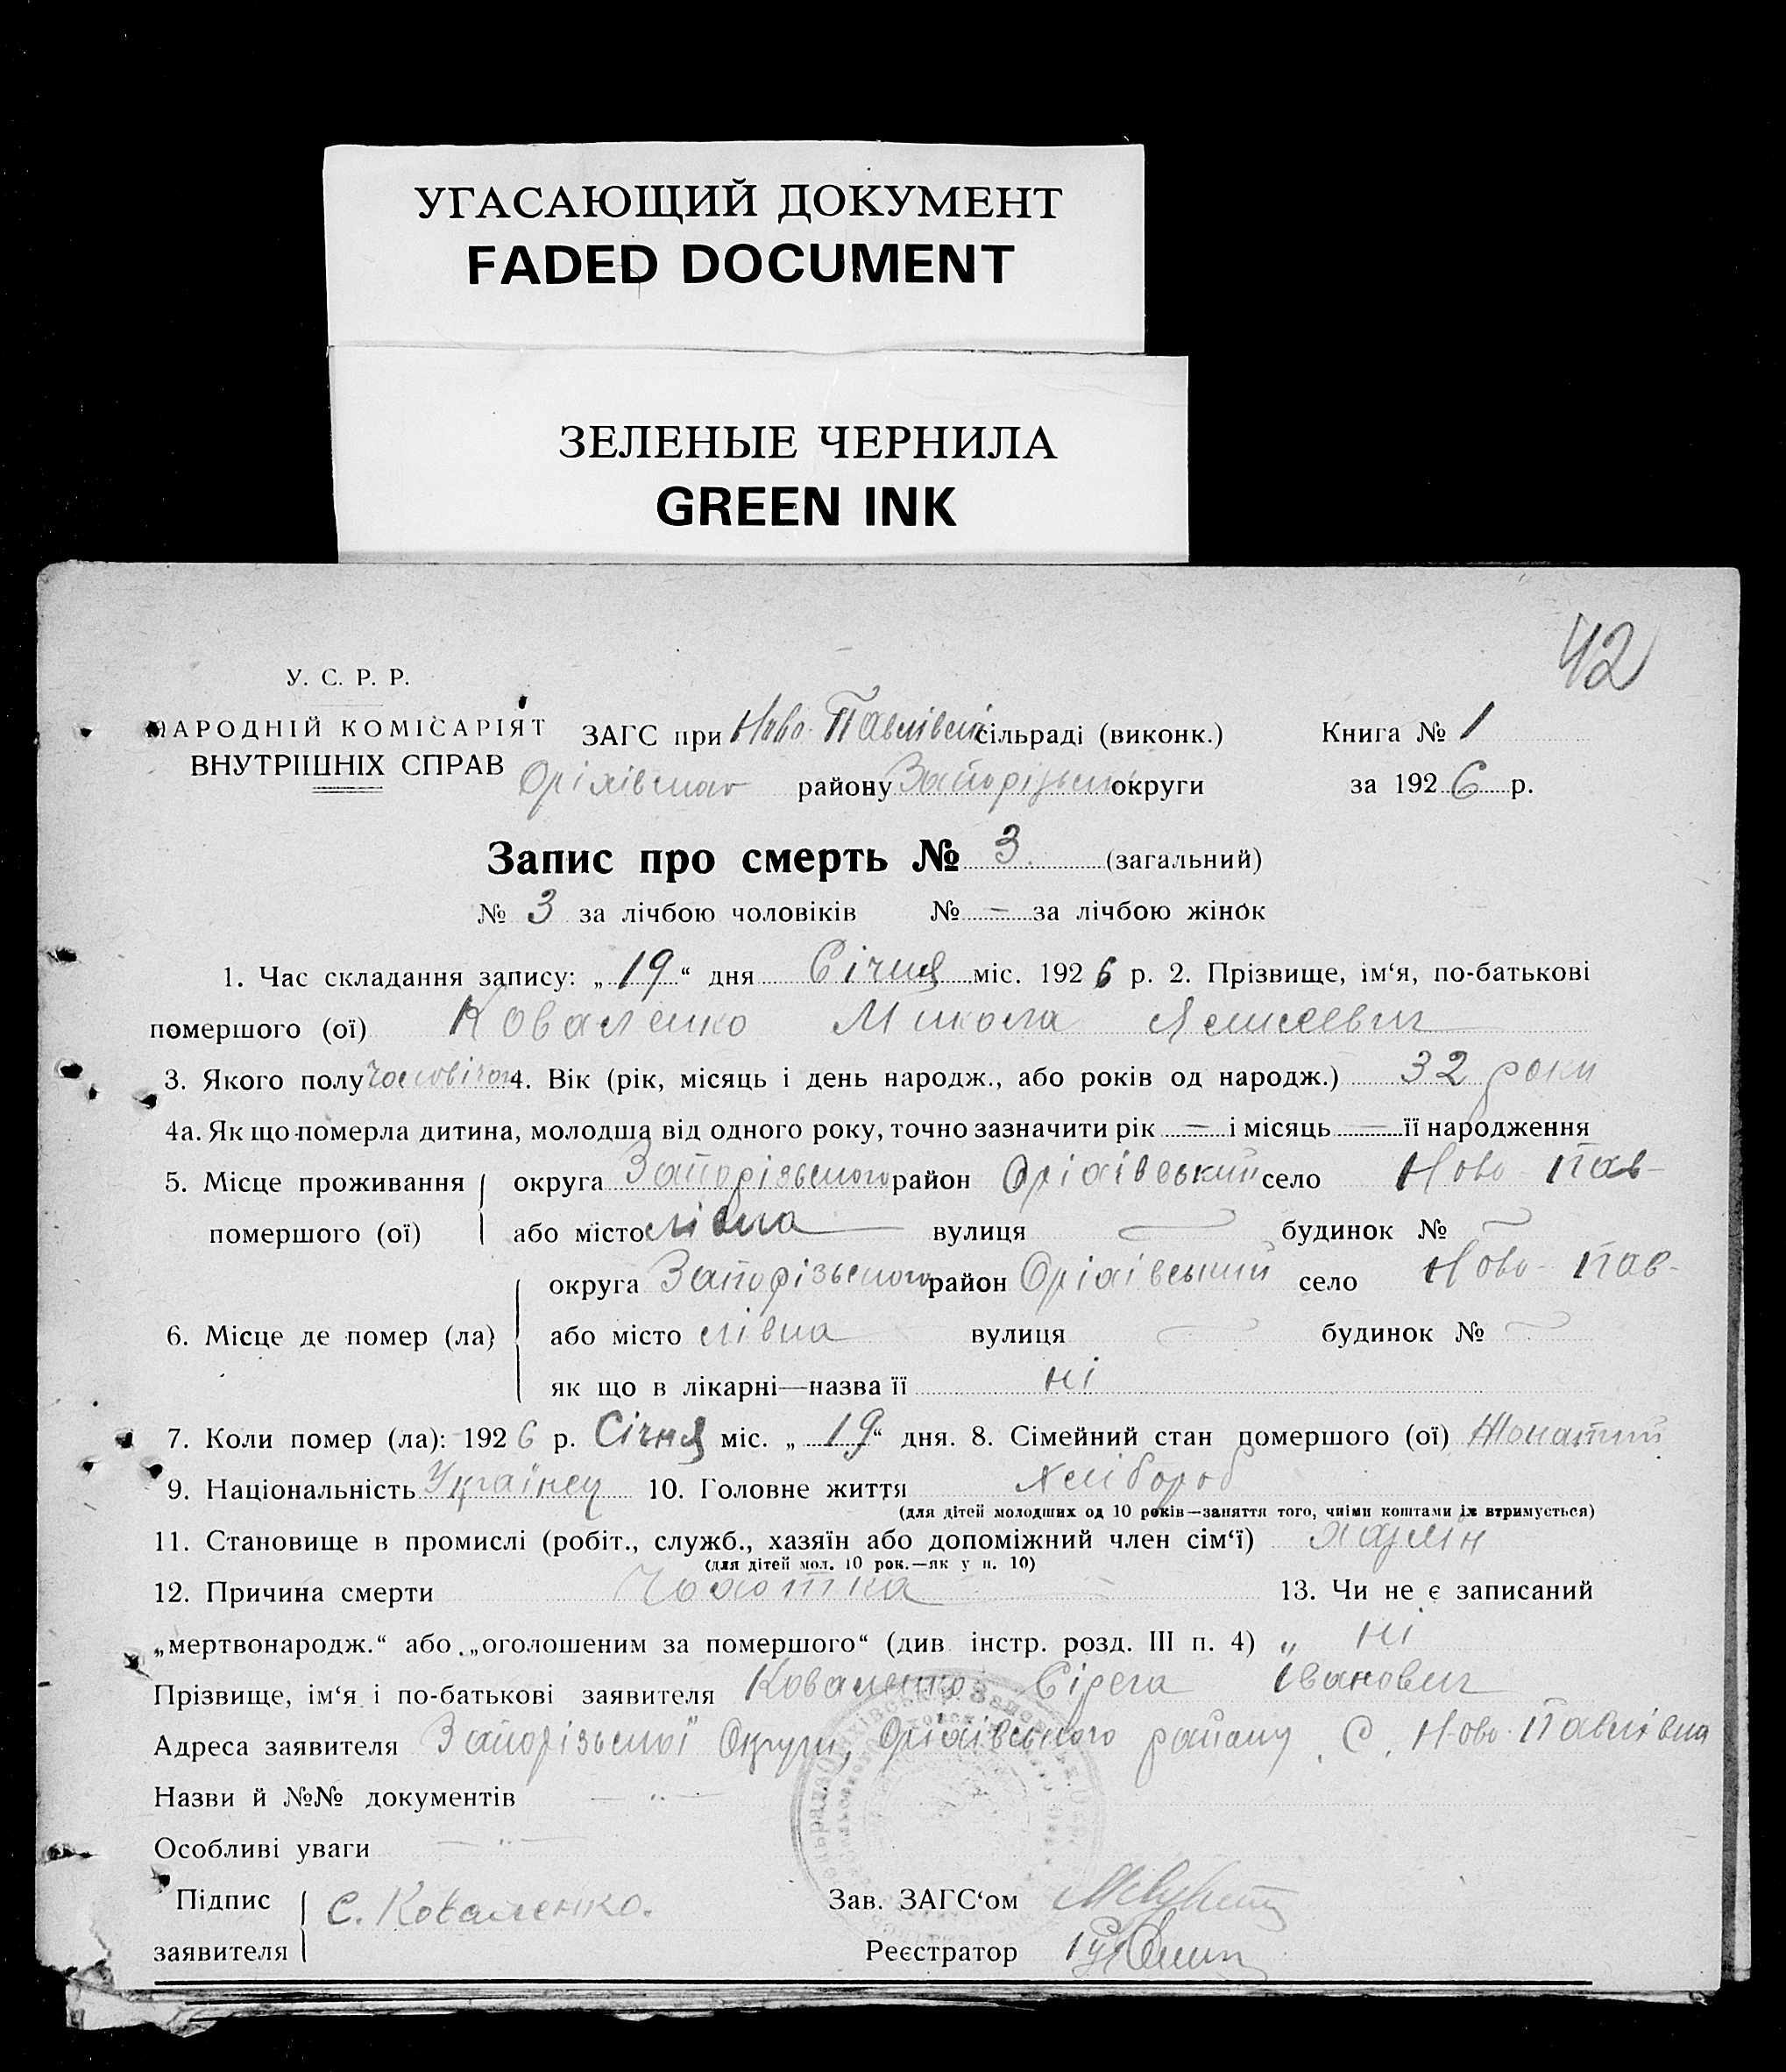 УГАСАЮЩИЙ ДОКУМЕНТ
FADED DOCUMENT
ЗЕЛЕНЫЕ ЧЕРНИЛА
GREEN INK
42
У. С. Р. Р.
НАРОДНІЙ КОМІСАРІЯТ
ВНУТРІШНІХ СПРАВ
ЗАГС при Ново-Павлівськ сільраді (виконк.) Книга № 1
Оріхівськог району Запорізьк округи за 1926 р.
Запис про смерть № 3 (загальний)
№ 3 за лічбою чоловіків № — за лічбою жінок
1. Час складання запису: „19“ дня Січня міс. 1926 р. 2. Прізвище, ім‘я, по-батькові
помершого (ої) Коваленко Микола
3. Якого полу 4. Вік (рік, місяць і день народж., або років од народж.) 32 роки
4а. Як що померла дитина, молодша від одного року, точно зазначити рік — і місяць — її народження
5. Місце проживання округа Запорізького район Оріхівський село Ново-Пав-
помершого (ої) або місто лівка вулиця — будинок № —
округа Запорізького район Оріхівський село Ново-Пав-
6. Місце де помер (ла) або місто лівка вулиця — будинок № —
як що в лікарні—назва її ні
7. Коли помер (ла): 1926 р. Січня міс. „19“ дня. 8. Сімейний стан помершого (ої) Жонатий
9. Національність Украінец 10. Головне життя хлібороб
(для дітей молодших од 10 років—заняття того, чиїми коштами їх втримується)
11. Становище в промислі (робіт., служб., хазяїн або допоміжний член сім‘ї)
(для дітей мол. 10 рок.—як у п. 10)
12. Причина смерти Чахотка 13. Чи не є записаний
„мертвонародж.“ або „оголошеним за помершого“ (див інстр. розд. III п. 4) „ ні
Прізвище, ім‘я і по-батькові заявителя Коваленко Сірега Іванович
Адреса заявителя Запорізької Округи, Оріхівського району С. Ново-Павлівка
Назви й №№ документів — „ —
Особливі уваги — „ —
Підпис заявителя С. Коваленко.
Зав. ЗАГС‘ом
Реєстратор